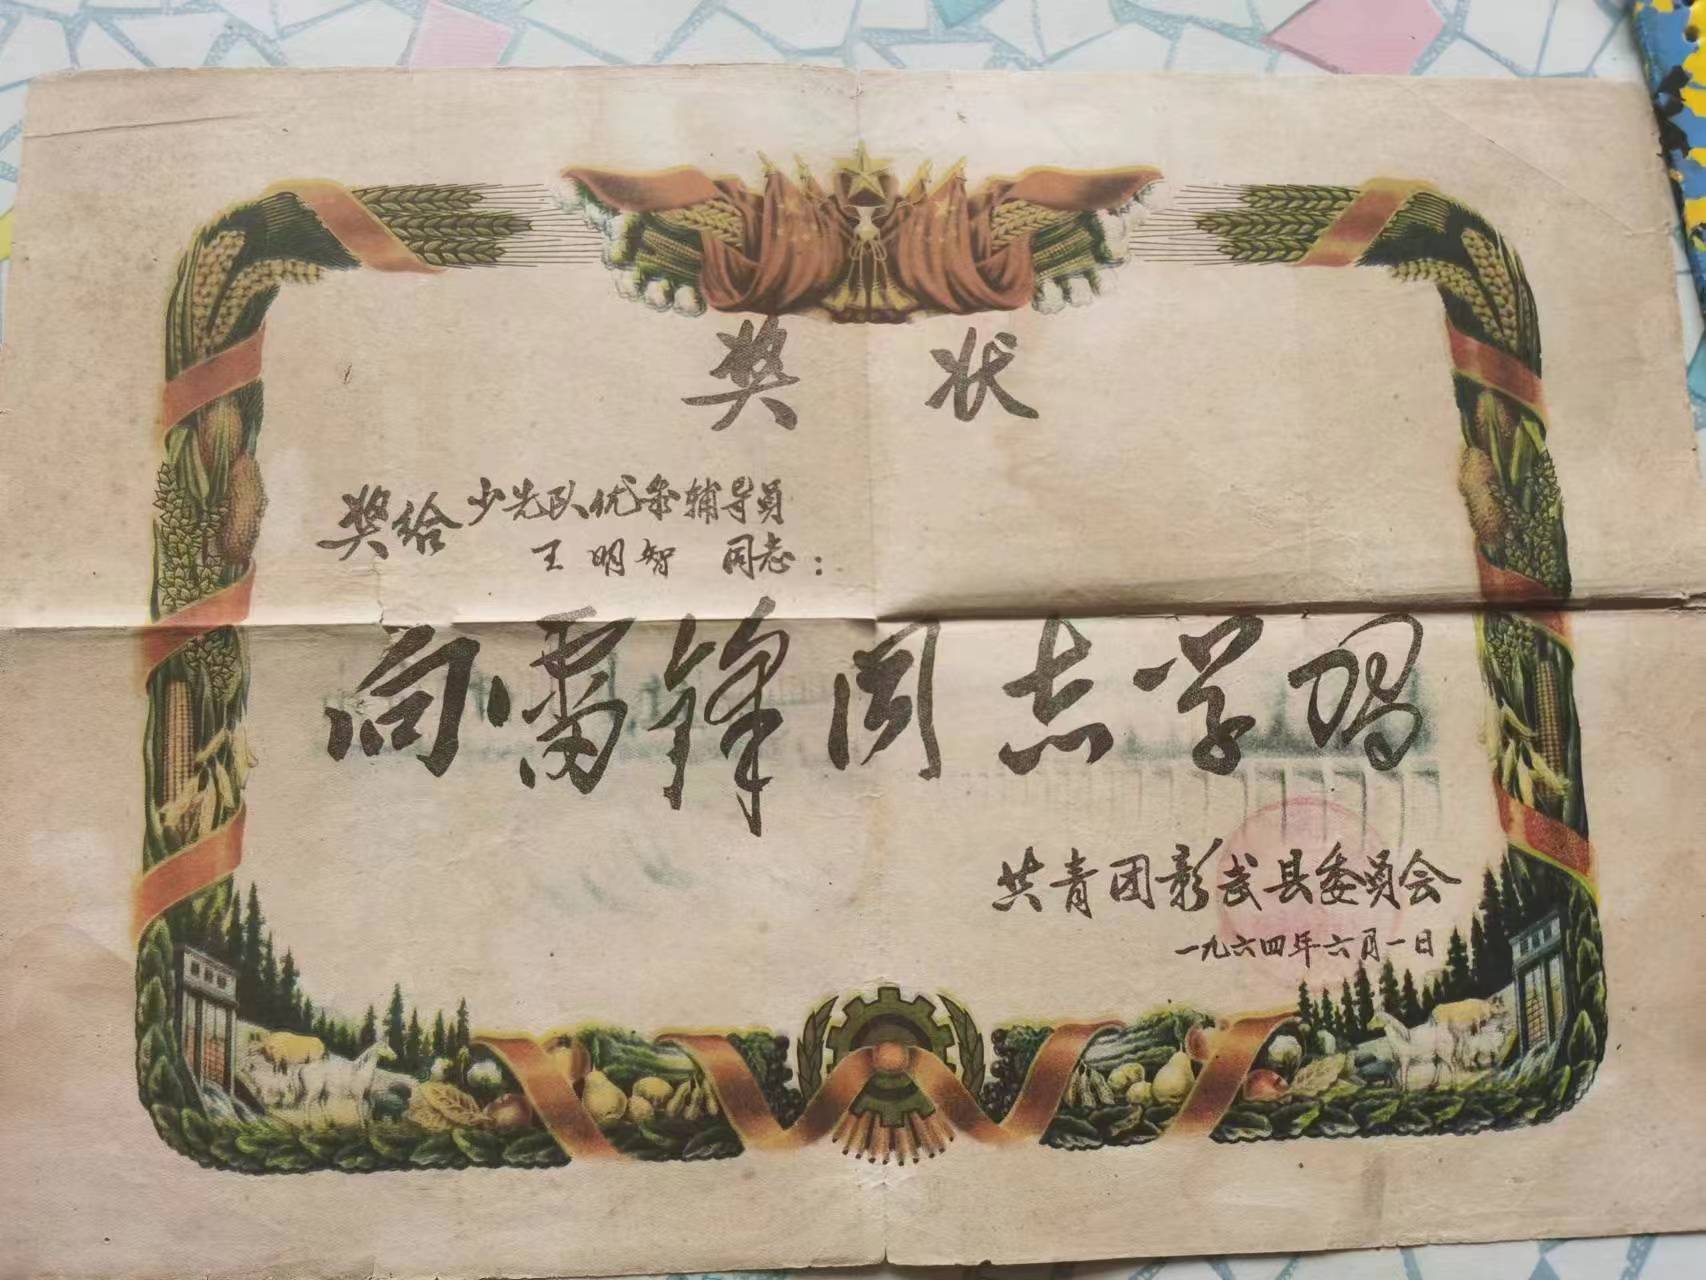 奖状
奖给少先队优秀辅导员
王明智 同志：
向雷锋同志学习
共青团彰武县委员会
一九六四年六月一日